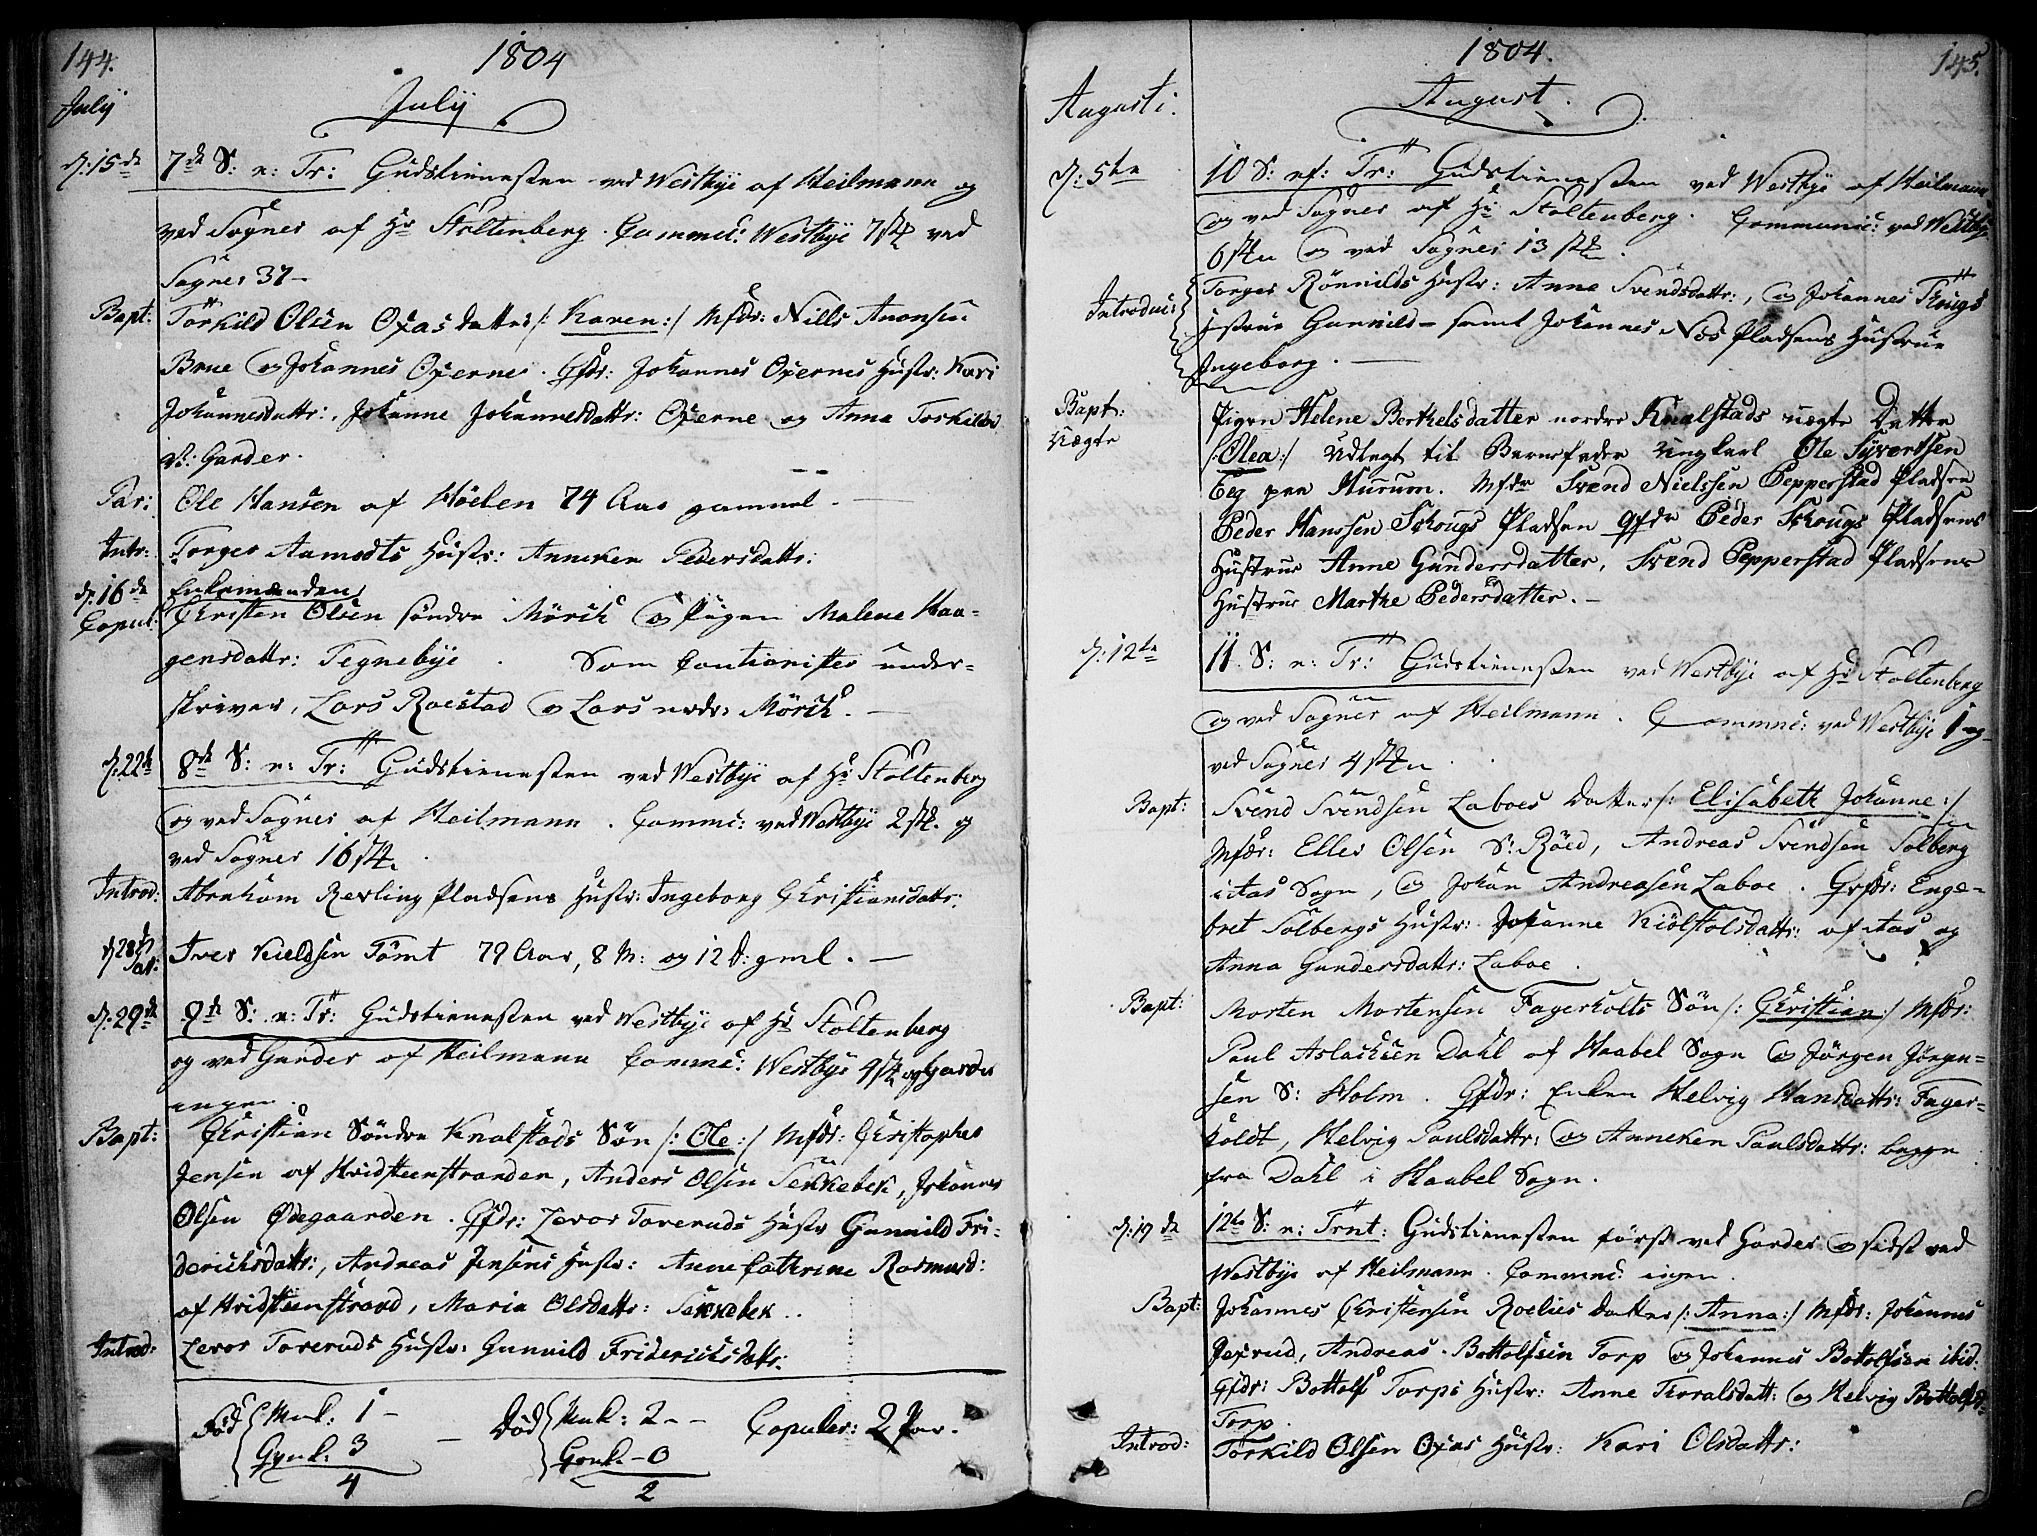 144.
1804
July
July
d: 15de
7de S: n: Tr: Gudstienesten ved Westbye af Heilmann og
ved Sogner af Hr Stoltenberg. Commc: Westbye 7 stk ved
Sogner 37 –
Bapt:
Törkild Olsen Oxas datter /: Karen :/ Mfdr: Nills Anonsen
Brue og Johannes Oxerner. Qfdr: Johannes Oxernes Hustr: Kari
Johannesdattr:, Johanne Johannesdattr: Oxerne og Anna Torkilds
V: Garder.
Par:
Ole Hansen af Höelen 74 Aar gammel. –
Intr:
Torger Aamodts Hustr: Anneken Pedersdattr:
d: 16de
Enkemanden
Copul:
Christen Olsen söndre Mörch og Pigen Malene Haa-
gensdattr: Tegnebye. Som Cautionister under-
skriver, Lars Roestad og Lars nedr: Mörch. –
d: 22de
8de S: n: Tr: Gudstienesten ved Westbye af Hr Stoltenberg
og ved Sogner af Heilmann. Commc: ved Westbye 2 stk. og
ved Sogner 16 stk.
Introd:
Abraham Revling Pladsens Hustr: Ingeborg Christiansdattr:
d 28de
Iver Kieldsen Tömt 79 Aar, 8 M: og 12 D: gml. –
d: 29de
9de S: n: Tr: Gudstienesten ved Westbye af Hr Stoltenberg
og ved Garder af Heilmann Commc: Westbye 4 stk og Garder
ingen.
Bapt:
Christian Söndre Knalstads Sön /: Ole :/ Mfdr: Christopher
Jensen af Hvidsteenstranden, Anders Olsen Senkebek, Johannes
Olsen Ödegaarden. Qfdr: Levor Toveruds Hustr Gunnild Fri-
derichsdattr:, Andreas Jensens Hustr: Anne Cathrine Rasmusd:
af Hvidsteenstrand, Maria Olsdattr: Senkebek.
Introd:
Levor Toveruds Hustr: Gunnild Friderichsdattr:
Fød { Msk: 1 – Død { Msk: 2 – Copuler: 2 Par.
Gynk: 3 – Gynk – 0
4 2
1804.
145.
Augusti.
August.
d: 5te
10 S: ef: Tr: Gudstienesten ved Westbye af Heilmann
og ved Sogner af Hr Stoltenberg. Communic: ved Westbye
6 stkr og ved Sogner 13 stk.
Introduc:
Torger Rönnilds Hustr: Anna Svendsdattr:, og Johannes Krugs
Hustrue Gunnild – samt Johannes Nos Pladsens Hustrue
Ingeborg. –
Bapt:
uægte
Pigen Helene Berthelsdatter nordre Knalstads uægte Datter
/: Olea :/ Udlagt til Barnefader Ungkarl Ole Syvertsen
Eeg paa Hurum. Mfdr Svend Nielssen Pepperstad Pladsen
Peder Hanssen Schougs Pladsen Qfdr Peder Schougs Pladsens
Hustrue Anne Gundersdatter, Svend Pepperstad Pladsens
Hustrue Marthe Pedersdatter. –
d: 12te
11. S: n: Tr: Gudstienesten ved Westbye af Hr Stoltenberg
og ved Sogner af Heilmann. Commnc: ved Westbye 1 og
ved Sogner 4 stkr.
Bapt:
Svend Svendsen Laboes Datter /: Elisabeth Johanne :/
Mfdr: Eller Olsen S: Röed, Andreas Svendsen Solberg
i Aas Sogn, og Johan Andreasen Laboe. Qvfdr: Enge-
bret Solbergs Hustr: Johanne Kiölstolsdattr: af Aas og
Anna Gundersdattr: Laboe.
Bapt:
Morten Mortensen Fagerholts Sön /: Christian :/ Mfdr:
Paul Aslachsen Dahl af Haabel Sogn og Jörgen Jörgen-
sen S: Holm. Qfdr: Enken Helvig Hansdattr: Fager-
holdt, Helvig Paulsdattr: og Anneken Paulsdattr: begge
fra Dahl i Haabel Sogn.
d: 19de
12te S: n: Trnt: Gudstienesten först ved Garder og sidst ved
Westbye af Heilmann. Commnc: ingen.
Bapt:
Johannes Christensen Roelies Datter /: Anna :/ Mfdr: Johannes
Jexrud, Andreas Bottolfsen Torp og Johannes Bottolfsen ibid.
Qfdr: Bottolf Torps Hustr: Anne Thoralsdatt: og Helvig Bottolfsd-
Torp.
Introd:
Törkild Olsen Oxas Hustr: Kari Olsdattr: